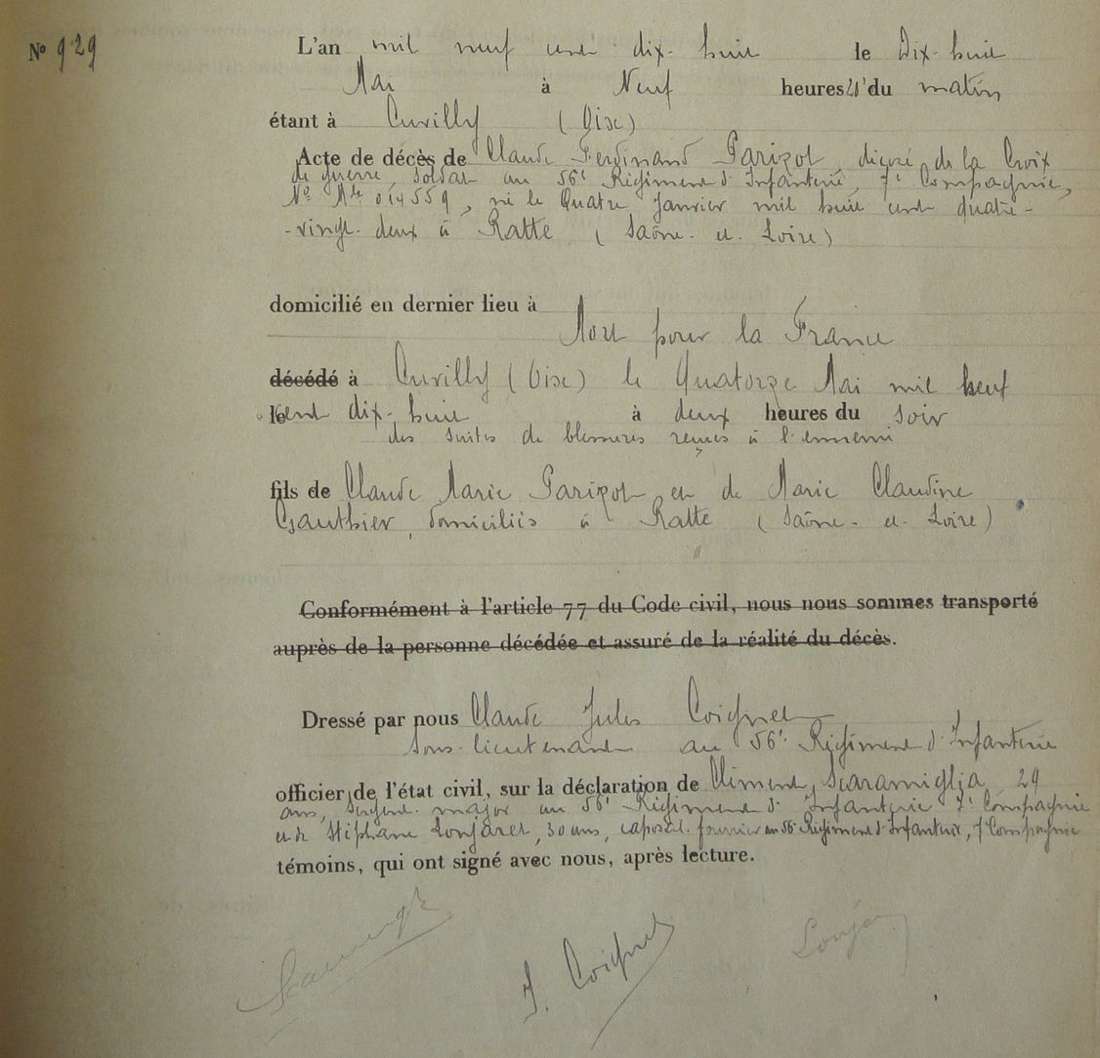 N° 929
L'an mil neuf cent dix-huit le Dix-huit
Mai à Neuf heures du matin
étant à Cuvilly (Oise)
Acte de décès de Claude Ferdinand Parizot, décoré de la Croix
de guerre, Soldat au 56e Régiment d'Infanterie, 7e Compagnie,
N° Mle 014559, né le Quatre Janvier mil huit cent quatre-
-vingt-deux à Ratte (Saône-et-Loire)
domicilié en dernier lieu à
Mort pour la France
décédé à Cuvilly (Oise) le Quatorze Mai mil neuf
le cent dix-huit à deux heures du soir
des suites de blessures reçues à l'ennemi
fils de Claude Marie Parizot et de Marie Claudine
Gauthier, domiciliés à Ratte (Saône-et-Loire)
Conformément à l'article 77 du Code civil, nous nous sommes transporté
auprès de la personne décédée et assuré de la réalité du décès.
Dressé par nous Claude Jules Coignet
Sous-lieutenant au 56e Régiment d'Infanterie
officier de l'état civil, sur la déclaration de Clément Scaramiglia, 29
ans, Sergent-major au 56e Régiment d'Infanterie 7e Compagnie
et de Stéphane Lonjaret, 30 ans, caporal-fourrier au 56e Régiment d'Infanterie, 7e Compagnie
témoins, qui ont signé avec nous, après lecture.
J. Coignet